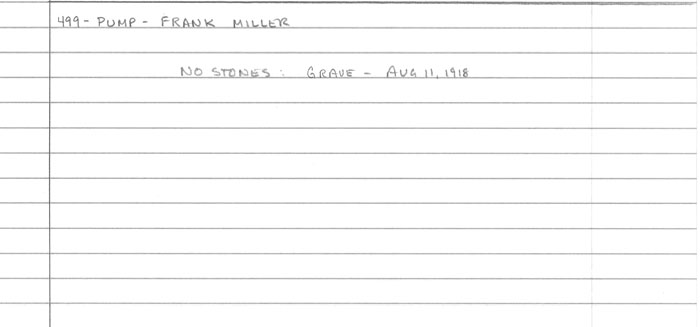 499- PUMP - FRANK MILLER
NO STONES: GRAVE - AUG 11, 1918